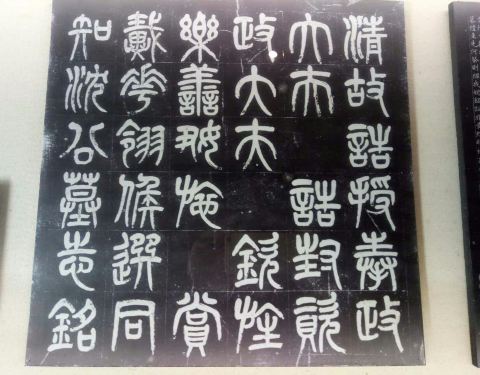 清故誥授奉政
大夫 誥封資
政大夫 欽旌
樂善好施 賞
戴花翎候選同
知沈公墓志銘